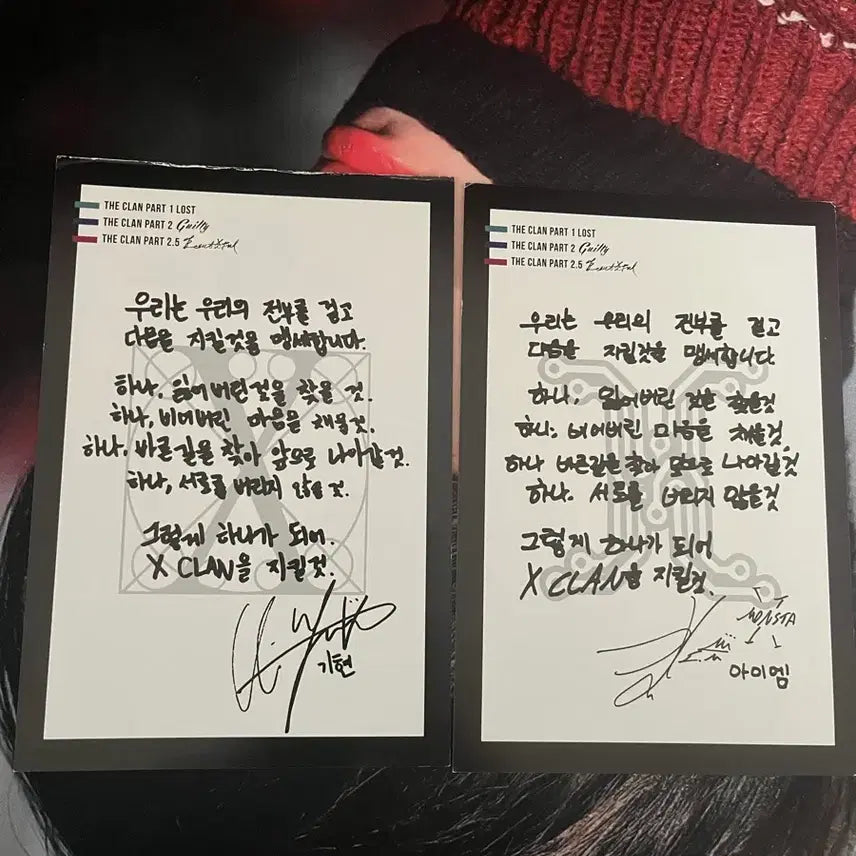 THE CLAN PART 1 LOST
THE CLAN PART 2 Guilty
THE CLAN PART 2.5 Beautiful
우리는 우리의 전부를 걸고
다음을 지킬것을 맹세합니다.
하나, 잃어버린것을 찾을 것.
하나, 비어버린 마음을 채울것.
하나, 바른길을 찾아 앞으로 나아갈 것.
하나, 서로를 버리지 않을 것.
그렇게 하나가 되어.
X CLAN을 지킬것.
기현
THE CLAN PART 1 LOST
THE CLAN PART 2 Guilty
THE CLAN PART 2.5 Beautiful
우리는 우리의 전부를 걸고
다음을 지킬것을 맹세합니다
하나, 잃어버린 것을 찾을것
하나, 비어버린 마음을 채울것.
하나 바른길을 찾아 앞으로 나아갈것
하나. 서로를 버리지 않을것
그렇게 하나가 되어
X CLAN을 지킬것.
MONSTA
아이엠